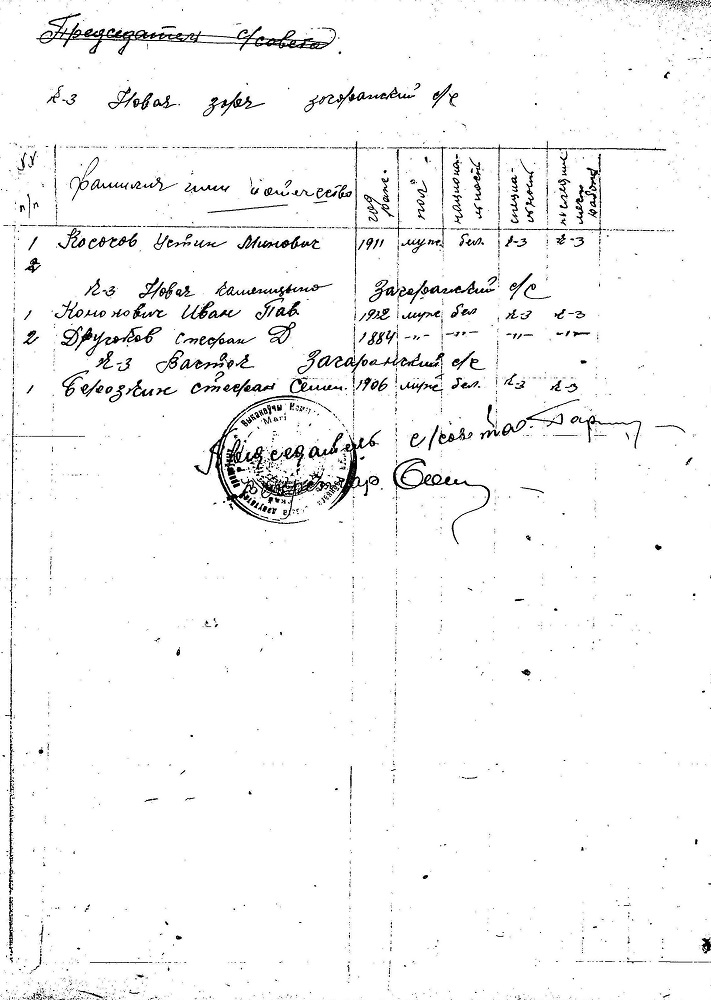 Председатель с/совета
к-з Новая заря загоранский с/с
NN п/п фамилия имя и отчество год рож. пол национальность специальность последние место работы
1 Косоров Устин Минович 1911 муж. бел. к-з к-з
2
к-з Новая каменицыно Загаранский с/с
1 Кононович Иван Пав. 1922 муж бел к-з к-з
2 Стефан Д 1884 -"- -"- -"- -"-
к-з Васток Загаранский с/с
1 Берозкин Стефан Семен. 1906 муж бел. к-з к-з
Председатель с/совета